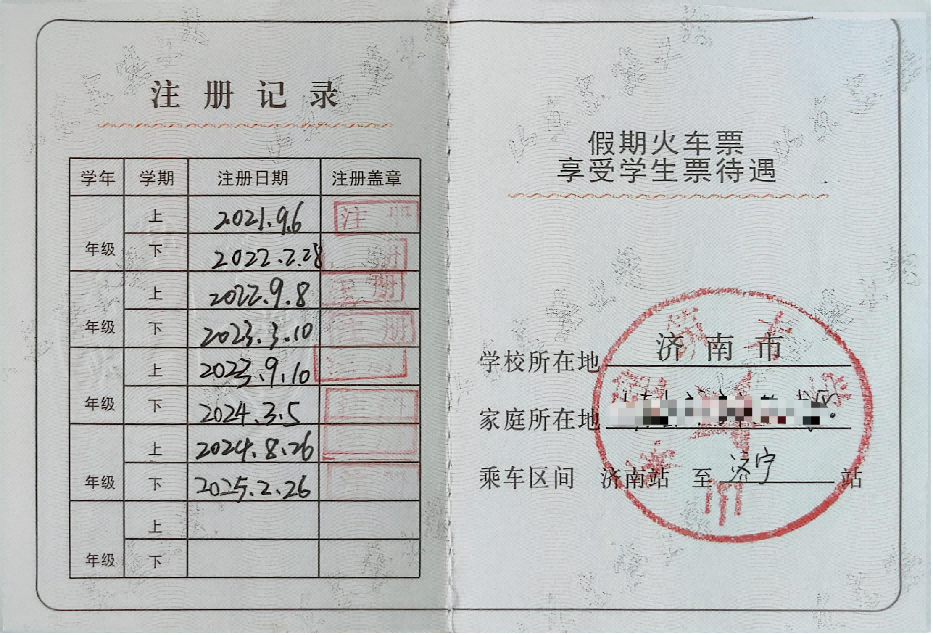 注册记录
学年 学期 注册日期 注册盖章
年级 上 2021.9.6 注册
下 2022.2.28 册
年级 上 2022.9.8 注册
下 2023.3.10 册
年级 上 2023.9.10
下 2024.3.5
年级 上 2024.8.26
下 2025.2.26
年级 上
下
假期火车票
享受学生票待遇
学校所在地 济南市
家庭所在地
乘车区间 济南站 至 济宁 站